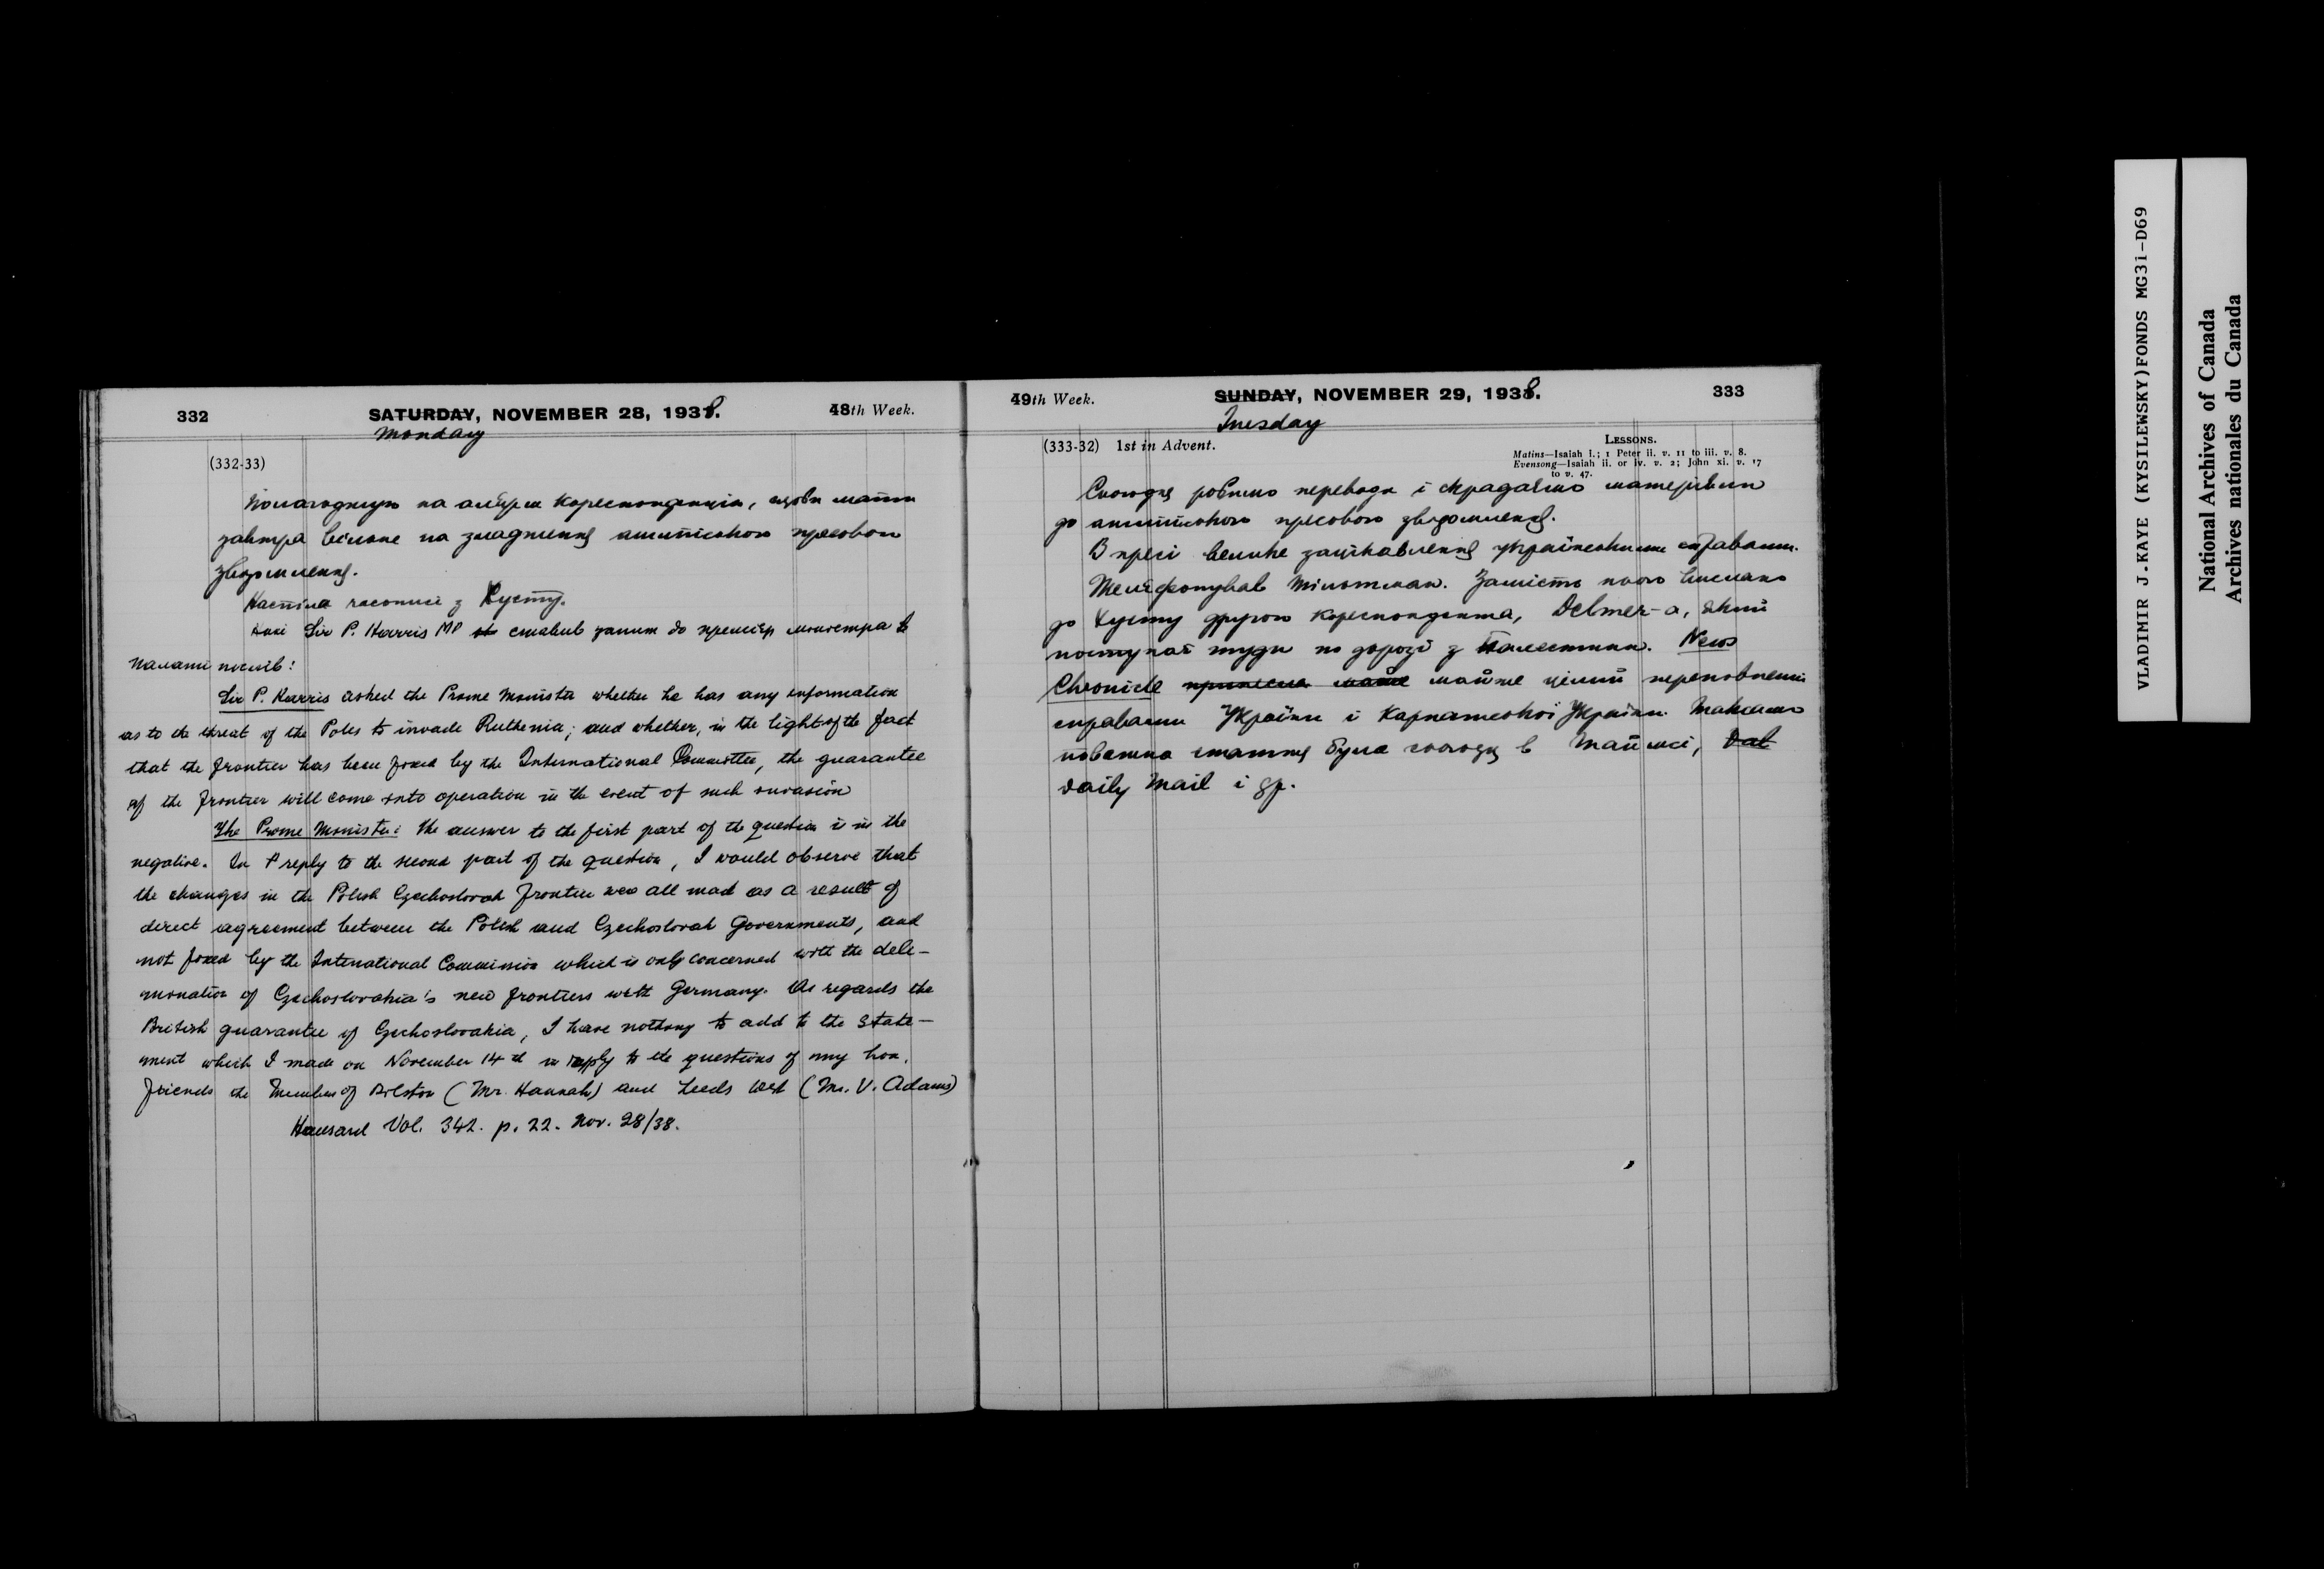 332
SATURDAY, NOVEMBER 28, 1938.
48th Week.
Monday
(332-33)
Полагоджую на алярм кореспонденцію, щоби мати
завтра вільне на зладження англійського пресового
звідомлення.
Наспіла часописі з Хусту.
Sir P. Harris MP ставив запит до премієр міністра в
палаті послів:
Sir P. Harris asked the Prime Minister whether he has any information
as to the threat of the Poles to invade Ruthenia; and whether, in the light of the fact
that the frontier has been fixed by the International Committee, the guarantee
of the frontier will come into operation in the event of such invasion
The Prime Minister: The answer to the first part of the question is in the
negative. In reply to the second part of the question, I would observe that
the changes in the Polish Czechoslovak frontier were all made as a result of
direct agreement between the Polish and Czechoslovak Governments, and
not fixed by the International Commission which is only concerned with the deli-
mination of Czechoslovakia's new frontiers with Germany. As regards the
British guarantee of Czechoslovakia, I have nothing to add to the state-
ment which I made on November 14th in reply to the questions of my hon.
friends the Members of Bilston (Mr. Hannah) and Leeds West (Mr. V. Adams)
Hansard Vol. 342. p. 22. Nov. 28/38.
49th Week.
SUNDAY, NOVEMBER 29, 1938.
333
Tuesday
(333-32) 1st in Advent.
LESSONS.
Matins—Isaiah i.; 1 Peter ii. v. 11 to iii. v. 8.
Evensong—Isaiah ii. or iv. v. 2; John xi. v. 17
to v. 47.
Сьогодня робимо переводи і складаємо матеріяли
до англійського пресового звідомлення.
В пресі велике зацікавлення українськими справами.
Телєфонував Тільтман. Замість нього вислано
до Хусту другого кореспондента, Delmer-a, який
поступає туди по дорозі з Палестини. News
Chronicle принесла майже майже цілий переповнений
справами України і Карпатської України. Так само
поважна стаття була сьогодня в Таймсі, Dal
Daily Mail і др.
VLADIMIR J.KAYE (KYSILEWSKY)FONDS MG31-D69
National Archives of Canada
Archives nationales du Canada